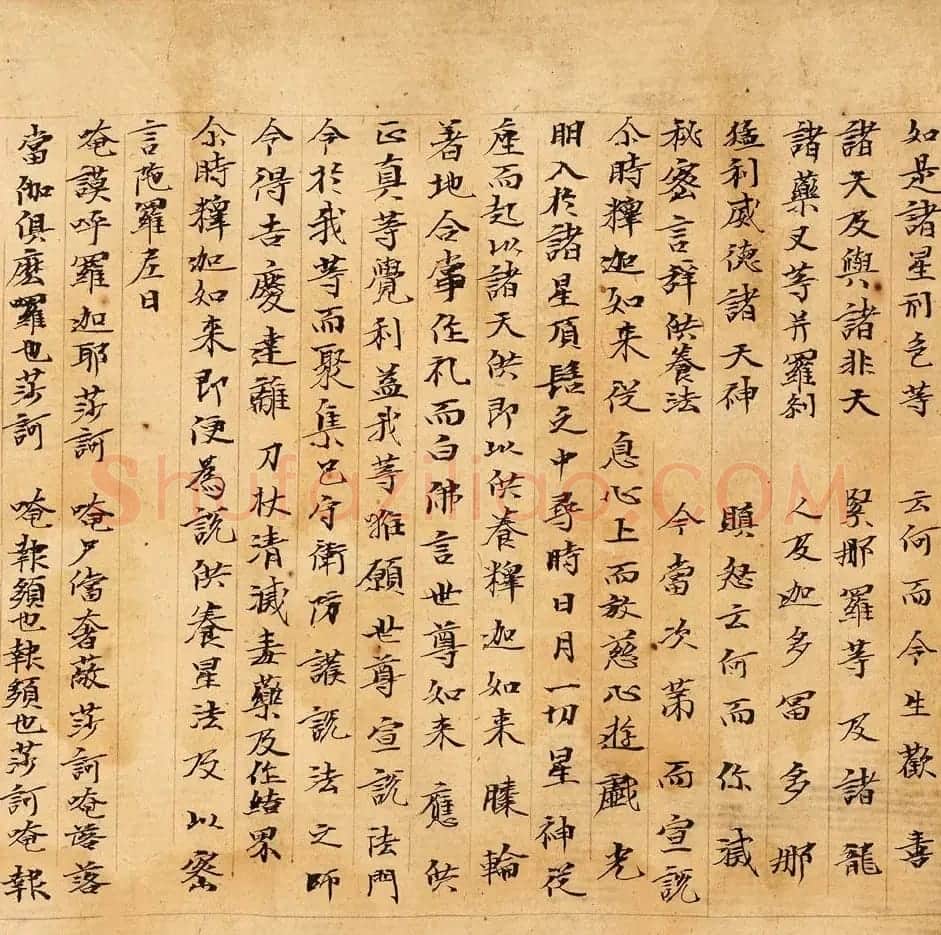 如是諸星刑色等　云何而令生歡喜
諸天及與諸非天　緊那羅等及諸龍
諸藥叉等并羅刹　人及迦多冨多那
猛利威德諸天神　瞋怒云何而作滅
秘密言辞供養法　今當次第而宣說
尒時釋迦如来從息心上而放慈心遊戲光
明入於諸星頂髻之中尋時日月一切星神從
座而起以諸天供即以供養釋迦如来膝輪
著地合掌作礼而白佛言世尊如来應供
正真等覺利益我等唯願世尊宣說法門
令於我等而聚集已守衛防護說法之師
令得吉慶遠離刀杖清滅毒藥及作結界
尒時釋迦如来即便為說供養星法及以密
言陁羅尼曰
唵謨呼羅迦耶莎訶　唵尸儅奢蔽莎訶唵落
當伽俱麼羅也莎訶　唵報頞也報頞也莎訶唵報
Shufaziliao.COM